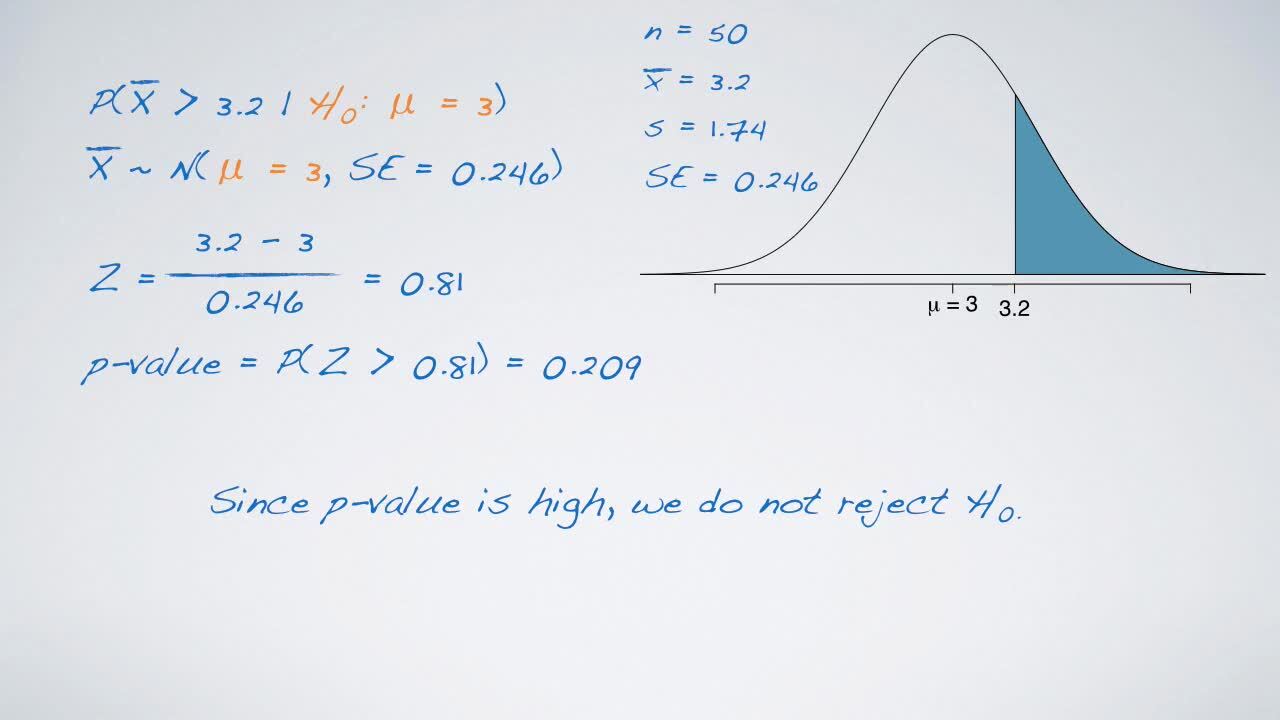 P(X̅ > 3.2 | H₀: μ = 3)
X̅ ~ N(μ = 3, SE = 0.246)
Z = (3.2 - 3) / 0.246 = 0.81
p-value = P(Z > 0.81) = 0.209
n = 50
x̅ = 3.2
s = 1.74
SE = 0.246
μ = 3 3.2
Since p-value is high, we do not reject H₀.